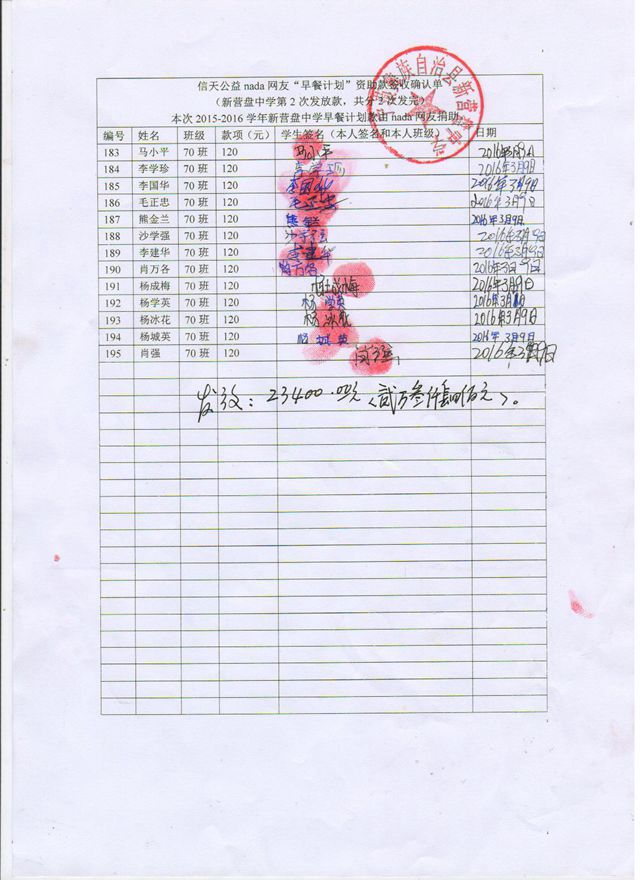 信天公益 nada 网友“早餐计划”资助款签收确认单
（新营盘中学第 2 次发放款，共分 2 次发完）
本次 2015-2016 学年新营盘中学早餐计划款由 nada 网友捐助
族自治县新营盘中学
编号 姓名 班级 款项（元） 学生签名（本人签名和本人班级） 日期
183 马小平 70 班 120 马小平 2016年3月9日
184 李学珍 70 班 120 李学珍 2016年3月9日
185 李国华 70 班 120 李国华 2016年3月9日
186 毛正忠 70 班 120 毛正忠 2016年3月9日
187 熊金兰 70 班 120 熊金兰 2016年3月9日
188 沙学强 70 班 120 沙学强 2016年3月9日
189 李建华 70 班 120 李建华 2016年3月9日
190 肖万各 70 班 120 肖万各 2016年3月9日
191 杨成梅 70 班 120 杨成梅 2016年3月9日
192 杨学英 70 班 120 杨学英 2016年3月9日
193 杨冰花 70 班 120 杨冰花 2016年3月9日
194 杨城英 70 班 120 杨城英 2016年3月9日
195 肖强 70 班 120 肖强 2016年3月9日
发放：23400.00元（贰万叁仟肆佰元）。